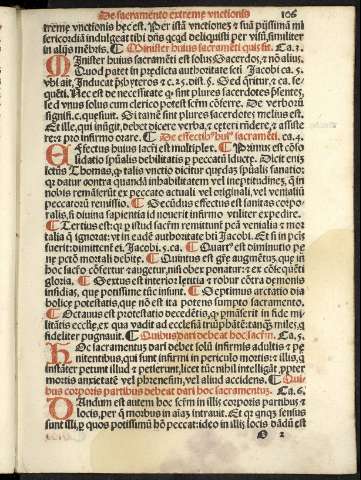 De sacramento extreme vnctionis 106
treme vnctionis hec est. Per istã vnctiones ⁊ suã pijssimã mi
sericordiã indulgeat tibi dñs qcqd deliquisti per visũ, similiter
in alijs mẽbris. ¶ Minister huius sacramẽti quis sit. Ca. 3.
MInister huius sacramẽti est solus Sacerdos, ⁊ nõ alius.
Quod patet in predicta authoritate scti Jacobi ca. 5.
vbi ait. Inducat p̃sbyteros ⁊ c. ⁊ 25. dist. §. Sed qritur. ⁊ ca. se
quẽti. Nec est de necessitate q̃ sint plures sacerdotes p̃sentes,
sed vnus solus cum clerico potest scr̃m cõferre. De verborũ
signifi. c. quesiuit. Si tamẽ sint plures sacerdotes melius est.
Et ille, qui inũgit, debet dicere verba, ⁊ ceteri rñdere, ⁊ assiste
re: ⁊ pro infirmo orare. ¶ De effectib᷒ hui᷒ sacrameti. ca. 4.
EFfectus huius sacri est multiplex. ¶ Primus est cõso
lidatio spũalis debilitatis p̱ peccatũ iducte. Dicit enim
sctus Thomas, q̃ talis vnctio dicitur quedaʒ spũalis sanatio:
q̃ datur contra quandã inhabilitatem vel ineptitudinẽ, q̃ in
nobis remãserat ex peccato actuali vel originali, vel venialiũ
peccatorũ remissio. ¶ Secũdus effectus est sanitas corpo
ralis, si diuina sapientia id nouerit infirmo vtiliter expedire.
¶ Tertius est: q̃ p istud sacr̃m remittunt̃ pctã venialia ⁊ mor
talia q̃ ignorat: vt in eadẽ authoritate bti Jacobi. Et si in pctis
fuerit: dimittent̃ ei. Jacobi. 5. ca. ¶ Quart᷒ est diminutio pe
ne pctõ mortali debite. ¶ Quintus est grẽ augmẽtum, que in
hoc sacr̃o cõfertur ⁊ augetur, nisi obex ponatur: ⁊ ex cõsequẽti
gloria. ¶ Sextus est interior letitia ⁊ robur cõtra demonis
insidias, que potissime tũc insunt. ¶ Septimus arctatio dia
bolice potestatis, que nõ est ita potens sumpto sacramento,
¶ Octauus est protestatio decedẽtis, q̃ p̱mãserit in fide mi
litãtis ecclie, ex qua vadit ad ecclesiã triũphãtẽ: tanq̃ʒ miles, q
fideliter pugnauit. ¶ Quibus dari debeat hoc scr̃m. Ca. 5.
HOc sacramentuʒ dari debet solũ infirmis adultis ⁊ pe
nitentibus, qui sunt infirmi in periculo mortis: ⁊ illis, q
instãter petunt illud ⁊ petierunt, licet tũc nihil intelligãt, p̱pter
mortis anxietatẽ vel phrenesim, vel aliud accidens. ¶ Qui
bus corporis partibus debeat dari hoc sacramentuʒ. Ca. 6.
DAndum est autem hoc scr̃m in illis corporis partibus ⁊
locis, per q̃ morbus in aiaʒ intrauit. Et qr qnqʒ sensus
sunt illi, p̱ quos potissimũ hõ peccat: ideo in illis locis dãdũ est
O 2